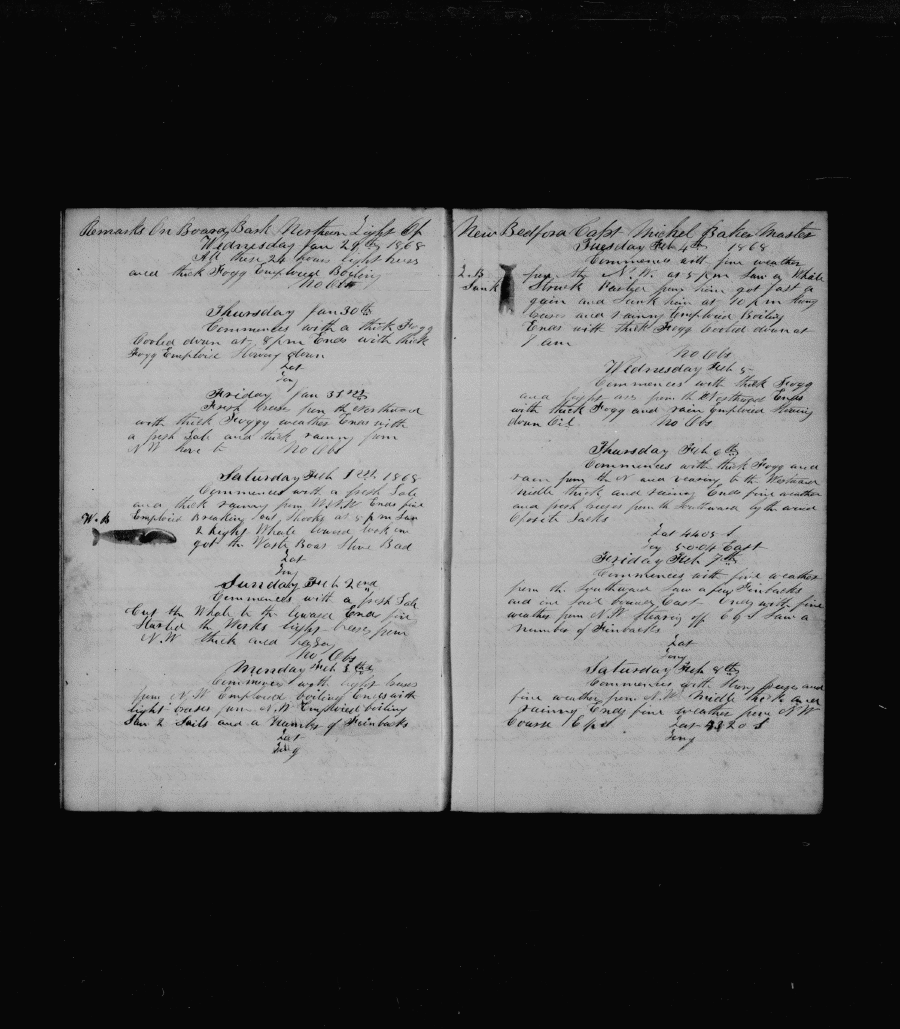 Remarks On Board Bark Northern Light Of
Wednesday Jan 29th 1868
All these 24 hours light breses
and thick Fogg Employed Boiling
No Obs
Thursday Jan 30th
Commences with a thick Fogg
Cooled down at 8 pm Ends with thick
Fogg Employed Stowing down
Lat
Long
Friday Jan 31st
Fresh breses from the Northward
with thick Foggy weather Ends with
a fresh Gale and thick rainny from
N W hove to No Obs
Saturday Feb 1st 1868
Commences with a fresh Gale
and thick rainny from W N W Ends fine
W. B Employed Breaking out Shooks at 5 p m Saw
2 Right Whale Lowed took one
got the Waste Boat Stove Bad
Lat
Long
Sunday Feb 2nd
Commences with a fresh Gale
Cut the Whale to the leward Ends fine
Started the Works light breses from
N. W thick and
No Obs
Munday Feb 3th
Commences with light breses
from N W Employed boiling Ends with
light brases from N W Employed boiling
Saw 2 Sails and a Number of Finbacks
Lat
Long
New Bedford Capt Michel Baker Master
Tuesday Feb 4th 1868
Commences with fine weather
L. B from the N. W. at 5 pm Saw a Whale
Sank Struck from him got fast a
gain and Sank him at 10 p m Strong
breses and rainny Employed Boiling
Ends with thick Fogg Cooled down at
1 am
No Obs
Wednesday Feb 5
Commences with thick Fogg
and from the Northward Ends
with thick Fogg and rain Employed Stowing
down Oil No Obs
Thursday Feb 6th
Commences with thick Fogg and
rain from the N and vearing to the Westward
midle thick and rainny Ends fine weather
and fresh breses from the Southward by the wind
Oposite Tacks
Lat 4405 S
Long 50-04 East
Friday Feb 7th
Commences with fine weather
from the Southward Saw a few Finbacks
and one Sail bound East Ends with fine
weather from N. W Stearing off E by S Saw a
number of Finbacks
Lat
Long
Saturday Feb 8th
Commences with Strong brese and
fine weather from N. W Midle thick and
rainny Ends fine weather from N W
Course E by S Lat 4320 S
Long